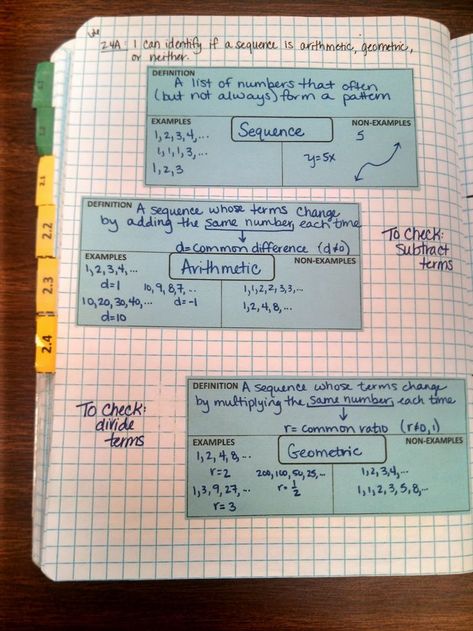 2.4A: I can identify if a sequence is arithmetic, geometric,
or neither.
DEFINITION A list of numbers that often
(but not always) form a pattern
EXAMPLES
Sequence
NON-EXAMPLES
1,2,3,4,...
1,1,1,3,...
1,2,3
5
y=5x
2.1
2.2
2.3
2.4
DEFINITION A sequence whose terms change
by adding the same number each time
d=common difference (d≠0)
EXAMPLES
Arithmetic
NON-EXAMPLES
1,2,3,4,...
d=1
10,9,8,7,...
d=-1
10,20,30,40,...
d=10
1,1,2,2,3,3,...
1,2,4,8,...
To check:
subtract
terms
To check:
divide
terms
DEFINITION A sequence whose terms change
by multiplying the same number each time
r=common ratio (r≠0,1)
EXAMPLES
Geometric
NON-EXAMPLES
1,2,4,8,...
r=2
200,100,50,25,...
r=1/2
1,3,9,27,...
r=3
1,2,3,4,...
1,1,2,3,5,8,...